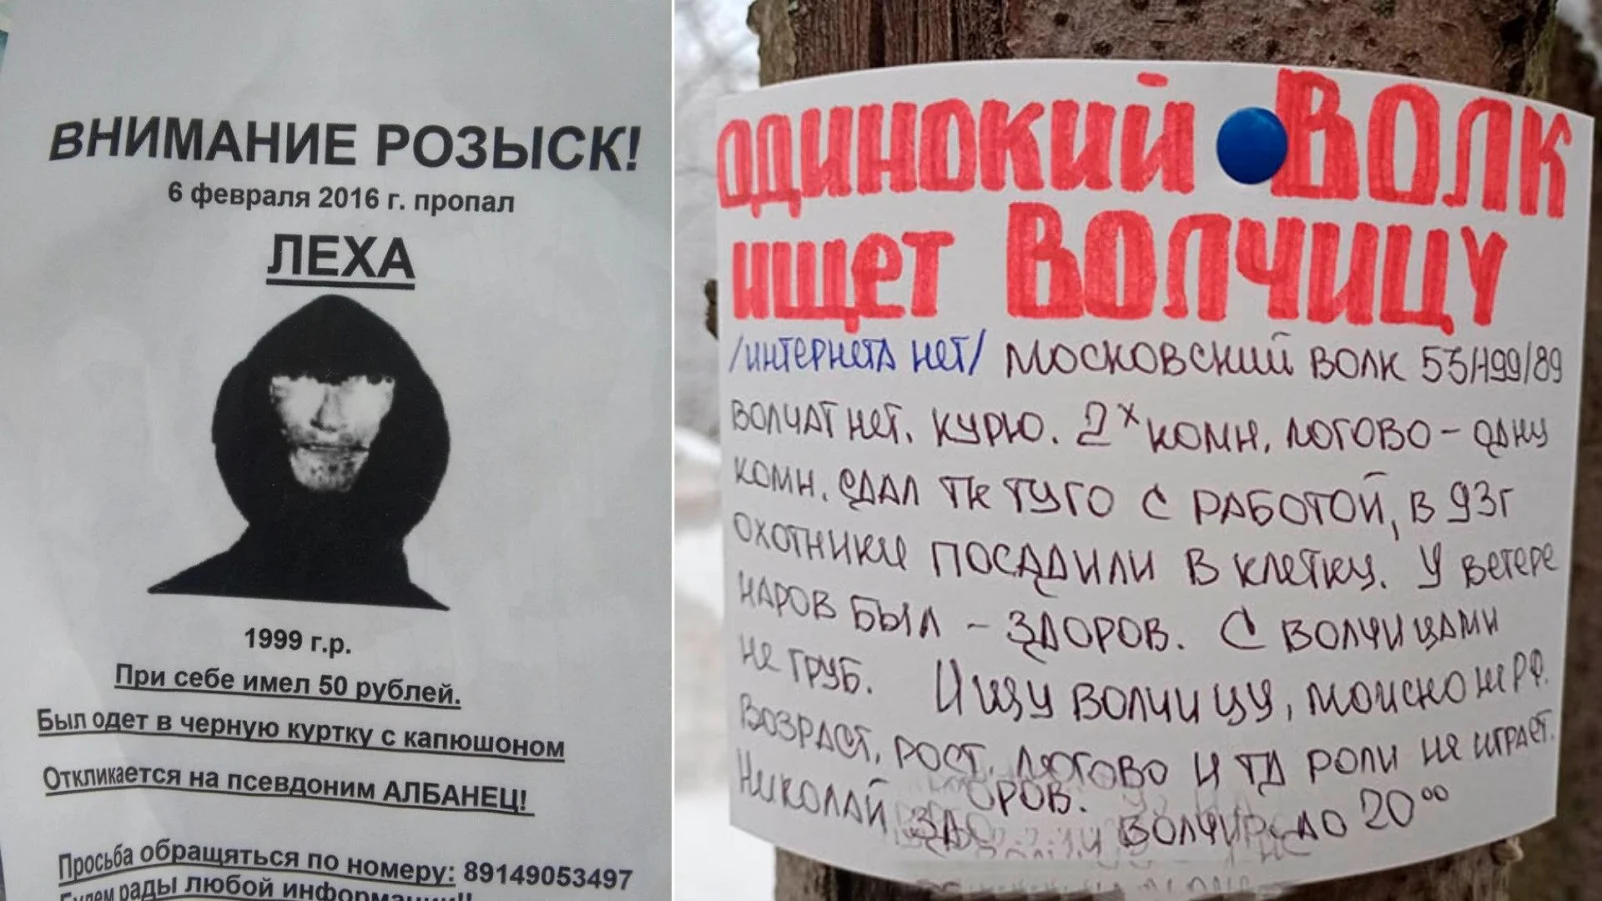 ВНИМАНИЕ РОЗЫСК!
6 февраля 2016 г. пропал
ЛЕХА
1999 г.р.
При себе имел 50 рублей.
Был одет в черную куртку с капюшоном
Откликается на псевдоним АЛБАНЕЦ!
Просьба обращяться по номеру: 89149053497
Будем рады любой информации!!
ОДИНОКИЙ ВОЛК
ИЩЕТ ВОЛЧИЦУ
/ИНТЕРНЕТА НЕТ/ МОСКОВСКИЙ ВОЛК 53/199/89
ВОЛЧАТ НЕТ. КУРЮ. 2х КОМН. ЛОГОВО - ОДНУ
КОМН. СДАЛ ТК ТУГО С РАБОТОЙ, В 93г
ОХОТНИКИ ПОСАДИЛИ В КЛЕТКУ. У ВЕТЕРЕ
НАРОВ БЫЛ - ЗДОРОВ. С ВОЛЧИЦАМИ
НЕ ГРУБ. ИЩУ ВОЛЧИЦУ, МОЖНО НЕ РФ.
ВОЗРАСТ, РОСТ, ЛОГОВО И ТД РОЛИ НЕ ИГРАЕТ.
НИКОЛАЙ ДО 20⁰⁰